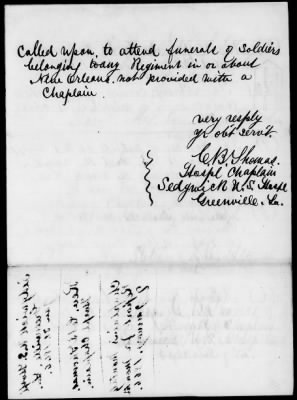 called upon, to attend funerals of Soldiers
belonging to any Regiment in or about
New Orleans, not provided with a
Chaplain.
very resply
yr obt servt.
C B. Thomas,
Hospl Chaplain
Sedgwick U.S. Hospl
Greenville, La.
Sedgwick U.S. Hospl
Greenville La
Hospl Chaplain.